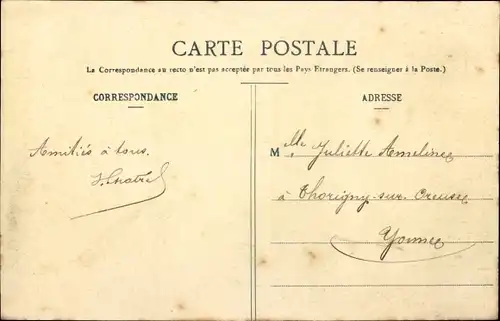 CARTE POSTALE
La Correspondance au recto n'est pas acceptée par tous les Pays Etrangers. (Se renseigner à la Poste.)
CORRESPONDANCE
Amitiés à tous.
ADRESSE
Melle Juliette Ameline
à Thorigny-sur-Oreuse
Yonne